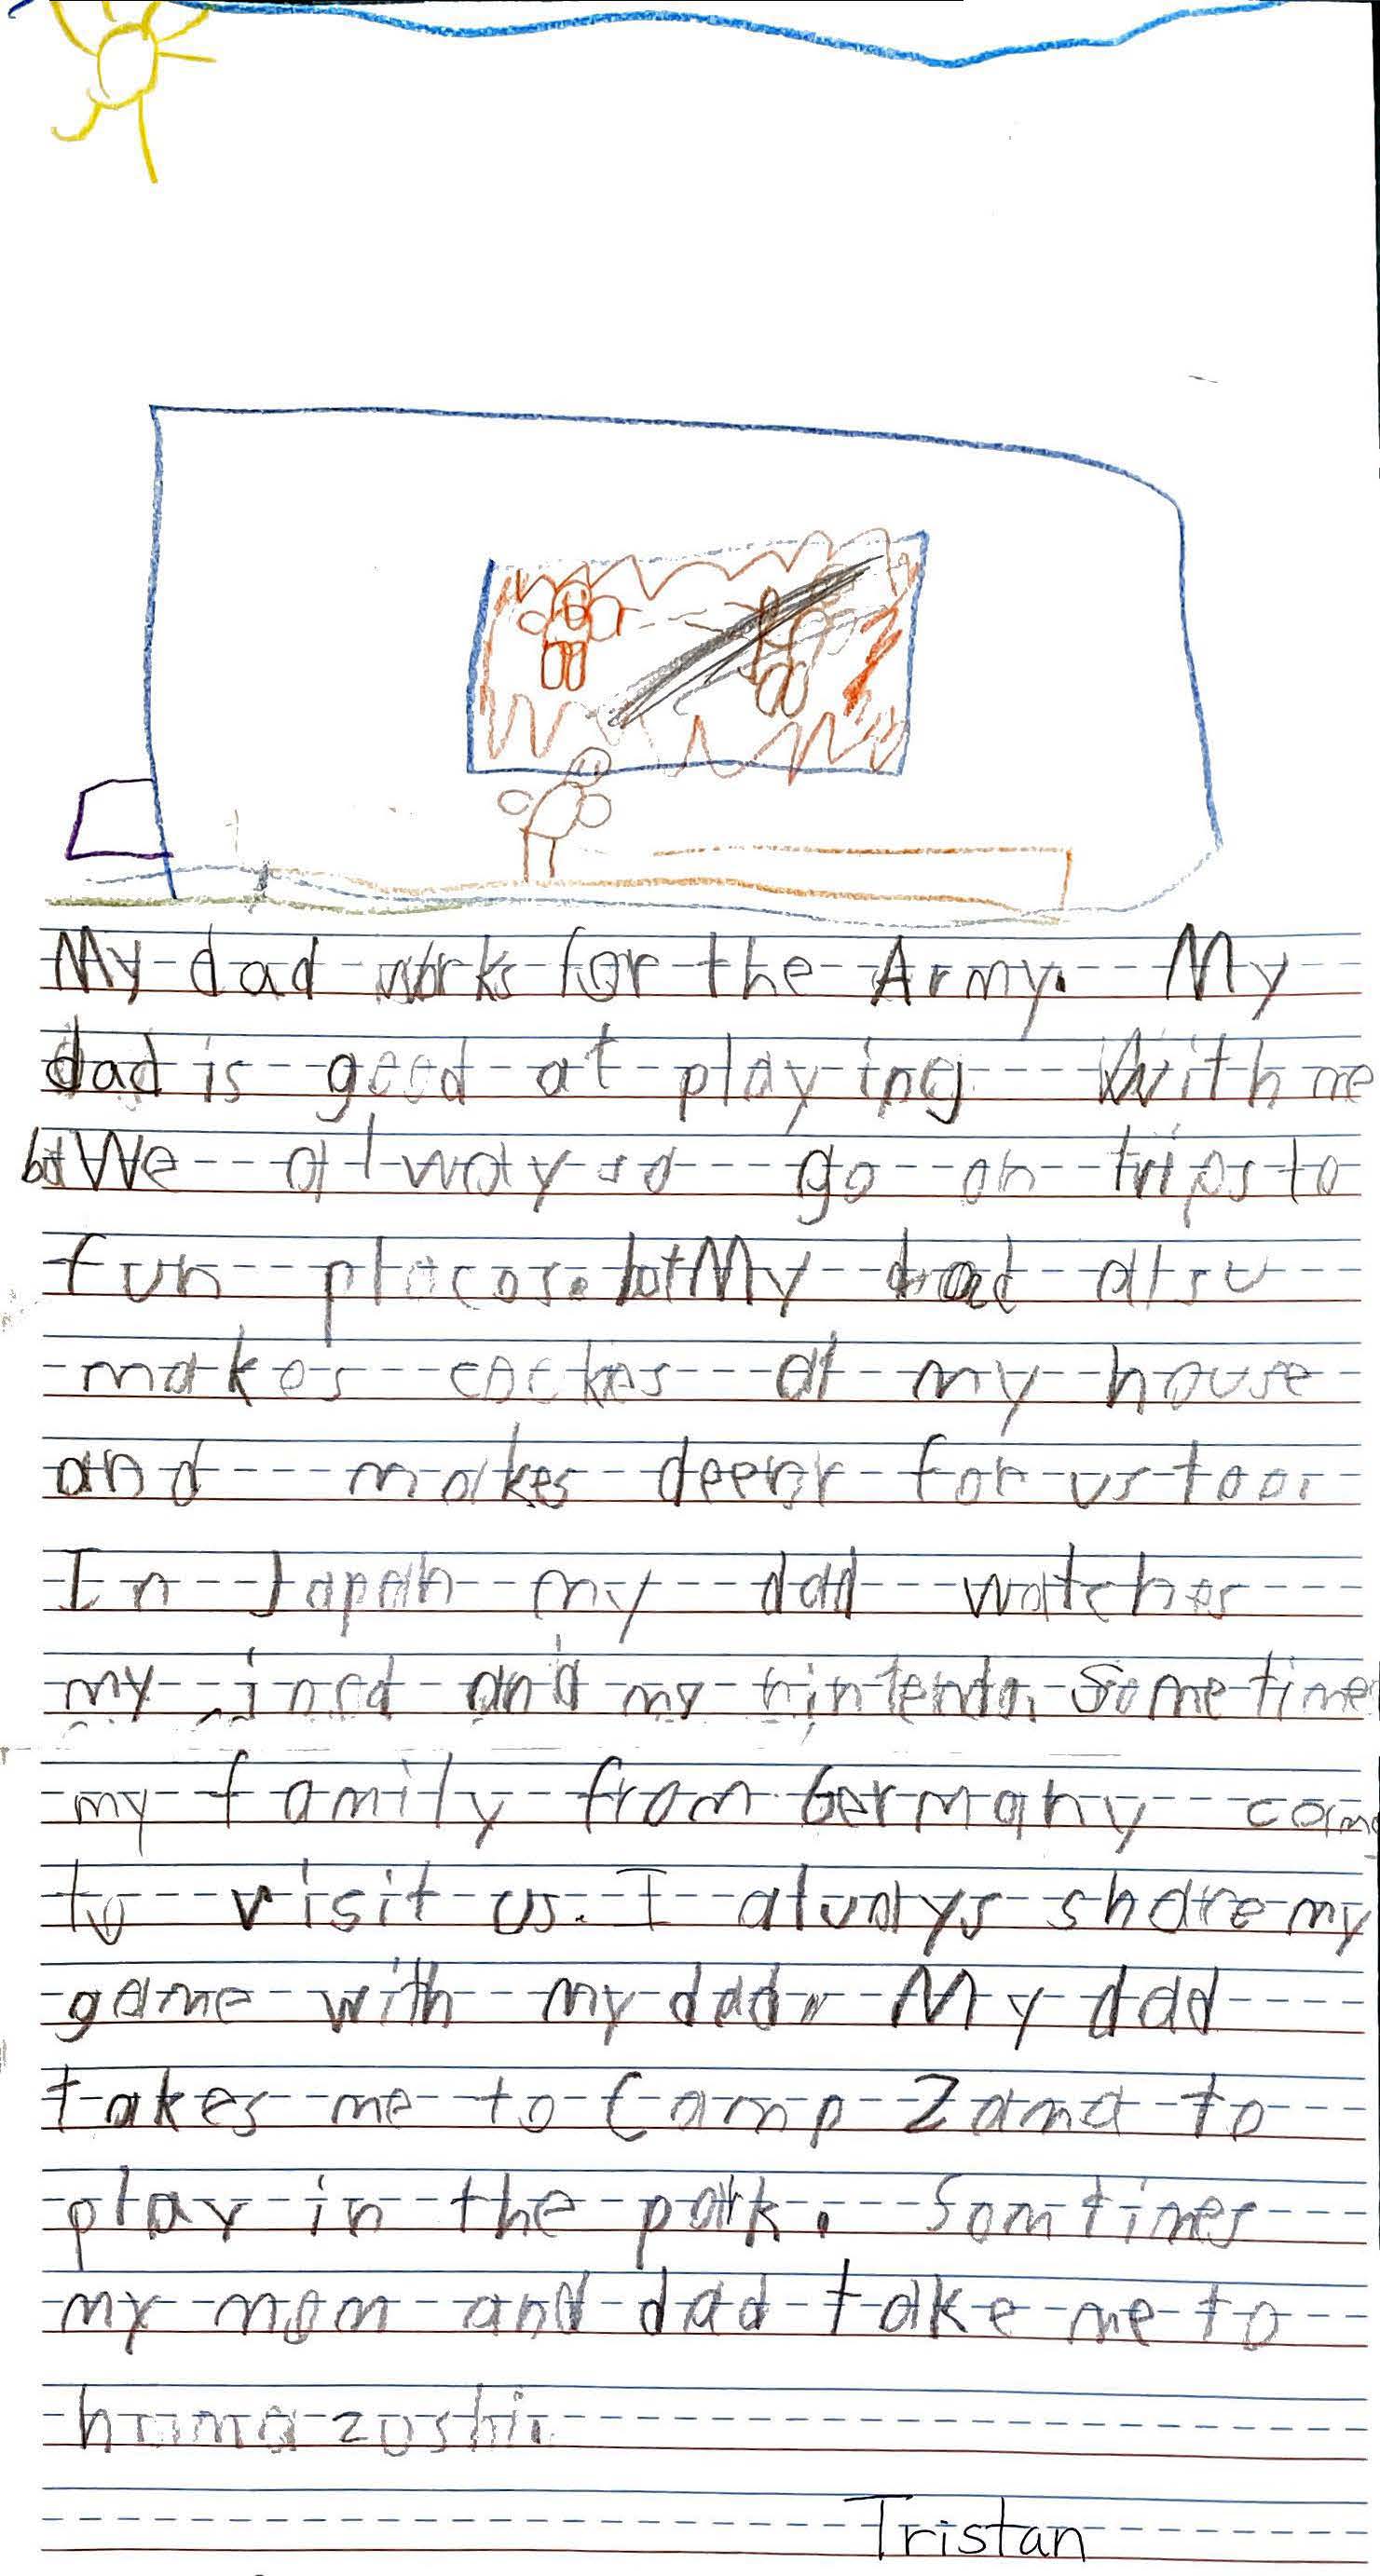 My dad works for the Army. My
dad is good at playing With me
but We always go on trips to
fun places. but My dad also
makes cockies at my house
and makes deenr for us too.
In Japan my dad watches
my and my nintendo. Sometime
my family from Germany come
to visit us. I always share my
game with my dad. My dad
takes me to Camp Zama to
play in the park. Somtimes
my mom and dad take me to
hamazushi.
Tristan